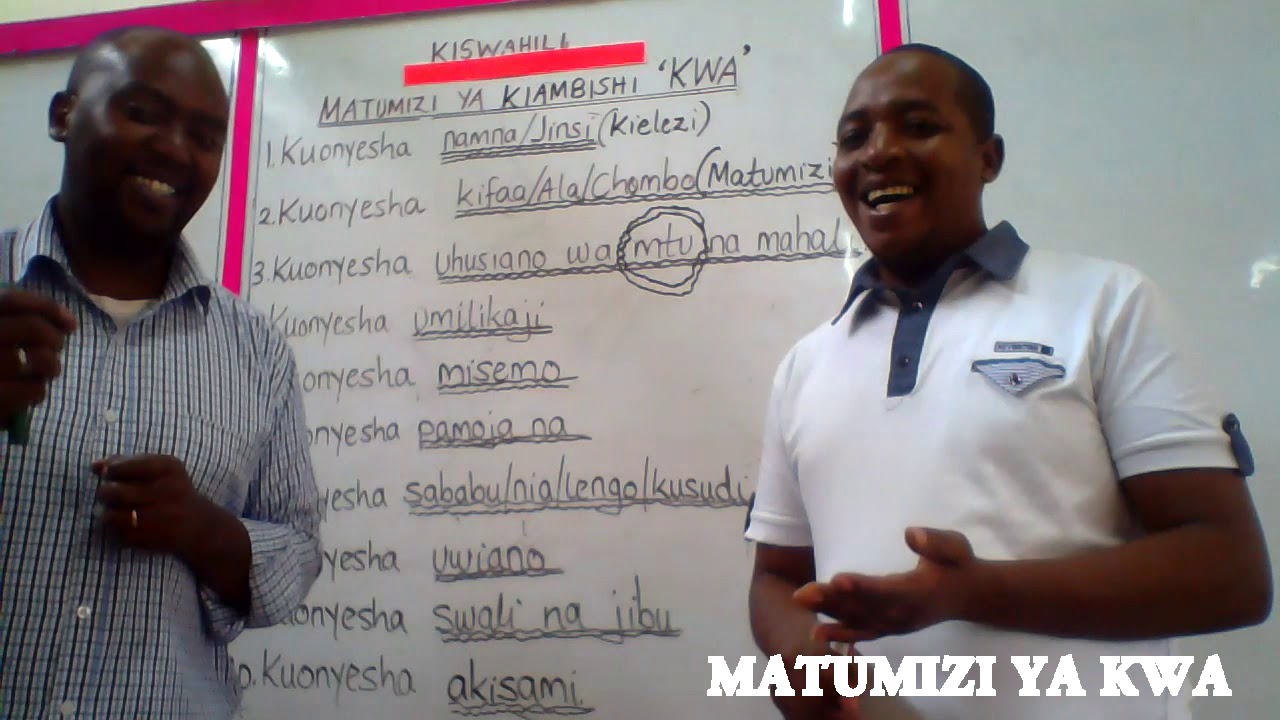 KISWAHILI
MATUMIZI YA KIAMBISHI 'KWA'
1. Kuonyesha namna/Jinsi (Kielezi)
2. Kuonyesha kifaa/Ala/Chombo (Matumizi
3. Kuonyesha Uhusiano wa mtu na mahal
Kuonyesha umilikaji
onyesha misemo
onyesha pamoja na
yesha sababu/nia/lengo/kusudi
yesha uwiano
uonyesha swali na jibu
0. Kuonyesha akisami.
MATUMIZI YA KWA